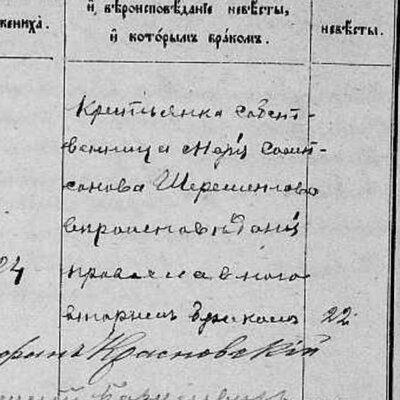 жениха.
и вѣроисповѣданіе невѣсты,
и которымъ бракомъ.
невѣсты.
Крестьянка собст-
венница Марія
Шереметова
вѣроисповѣданія
православнаго
24
вторымъ бракомъ
22
Красновскій